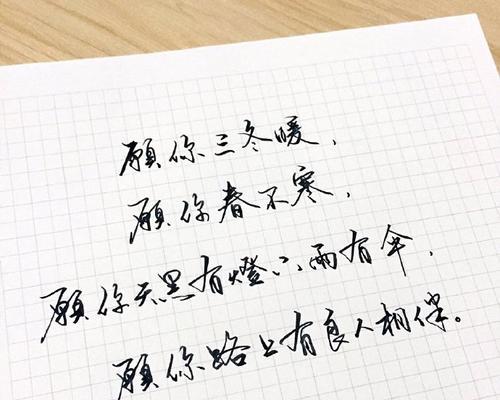 願你三冬暖，
願你春不寒，
願你天黑有燈下雨有傘，
願你路上有良人相伴。